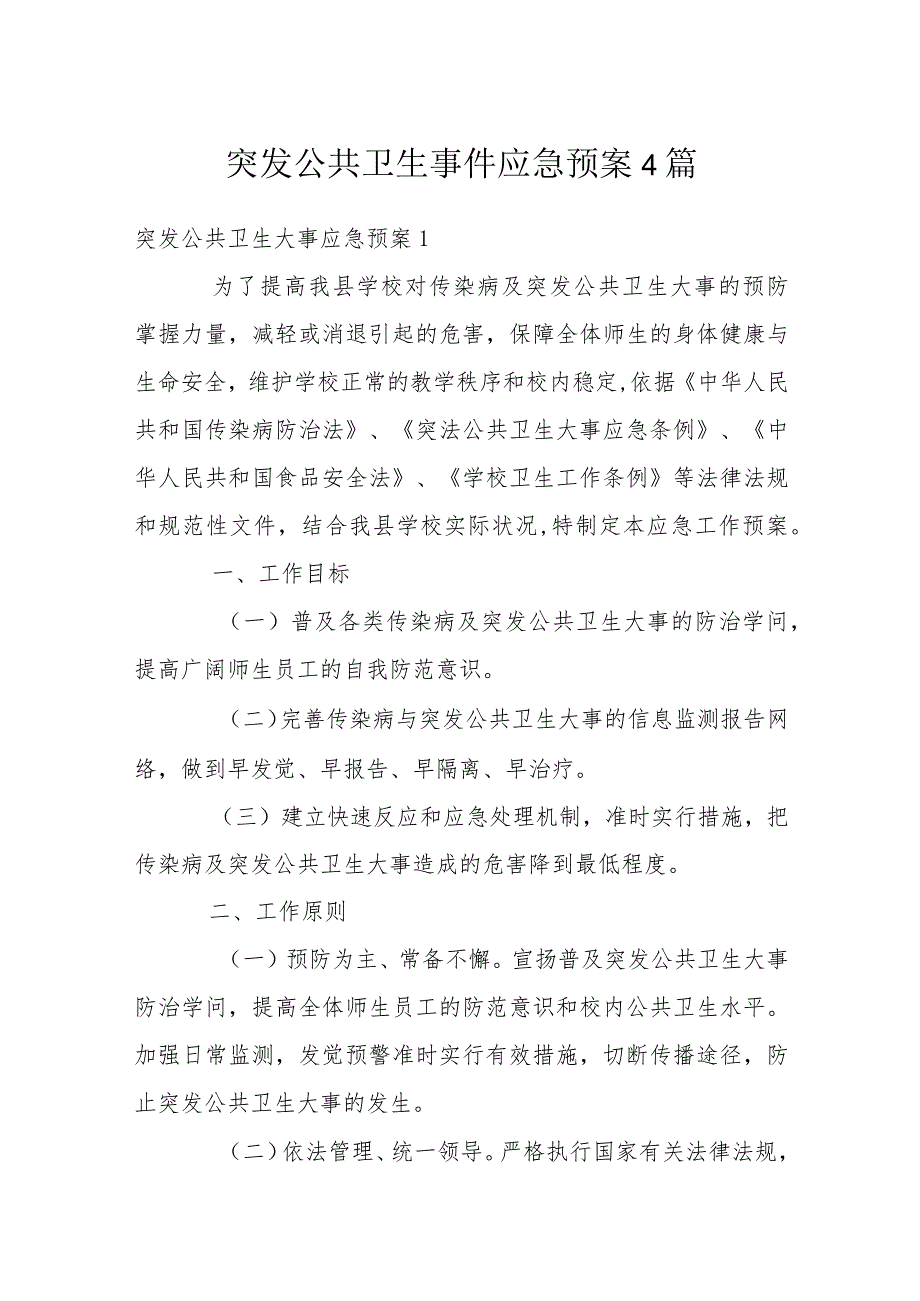 突发公共卫生事件应急预案4篇
突发公共卫生大事应急预案1
为了提高我县学校对传染病及突发公共卫生大事的预防
掌握力量，减轻或消退引起的危害，保障全体师生的身体健康与
生命安全，维护学校正常的教学秩序和校内稳定,依据《中华人民
共和国传染病防治法》、《突法公共卫生大事应急条例》、《中
华人民共和国食品安全法》、《学校卫生工作条例》等法律法规
和规范性文件，结合我县学校实际状况,特制定本应急工作预案。
一、工作目标
（一）普及各类传染病及突发公共卫生大事的防治学问，
提高广阔师生员工的自我防范意识。
（二)完善传染病与突发公共卫生大事的信息监测报告网
络，做到早发觉、早报告、早隔离、早治疗。
（三）建立快速反应和应急处理机制，准时实行措施，把
传染病及突发公共卫生大事造成的危害降到最低程度。
二、工作原则
（一）预防为主、常备不懈。宣扬普及突发公共卫生大事
防治学问，提高全体师生员工的防范意识和校内公共卫生水平。
加强日常监测，发觉预警准时实行有效措施，切断传播途径，防
止突发公共卫生大事的发生。
（二)依法管理、统一领导。严格执行国家有关法律法规，